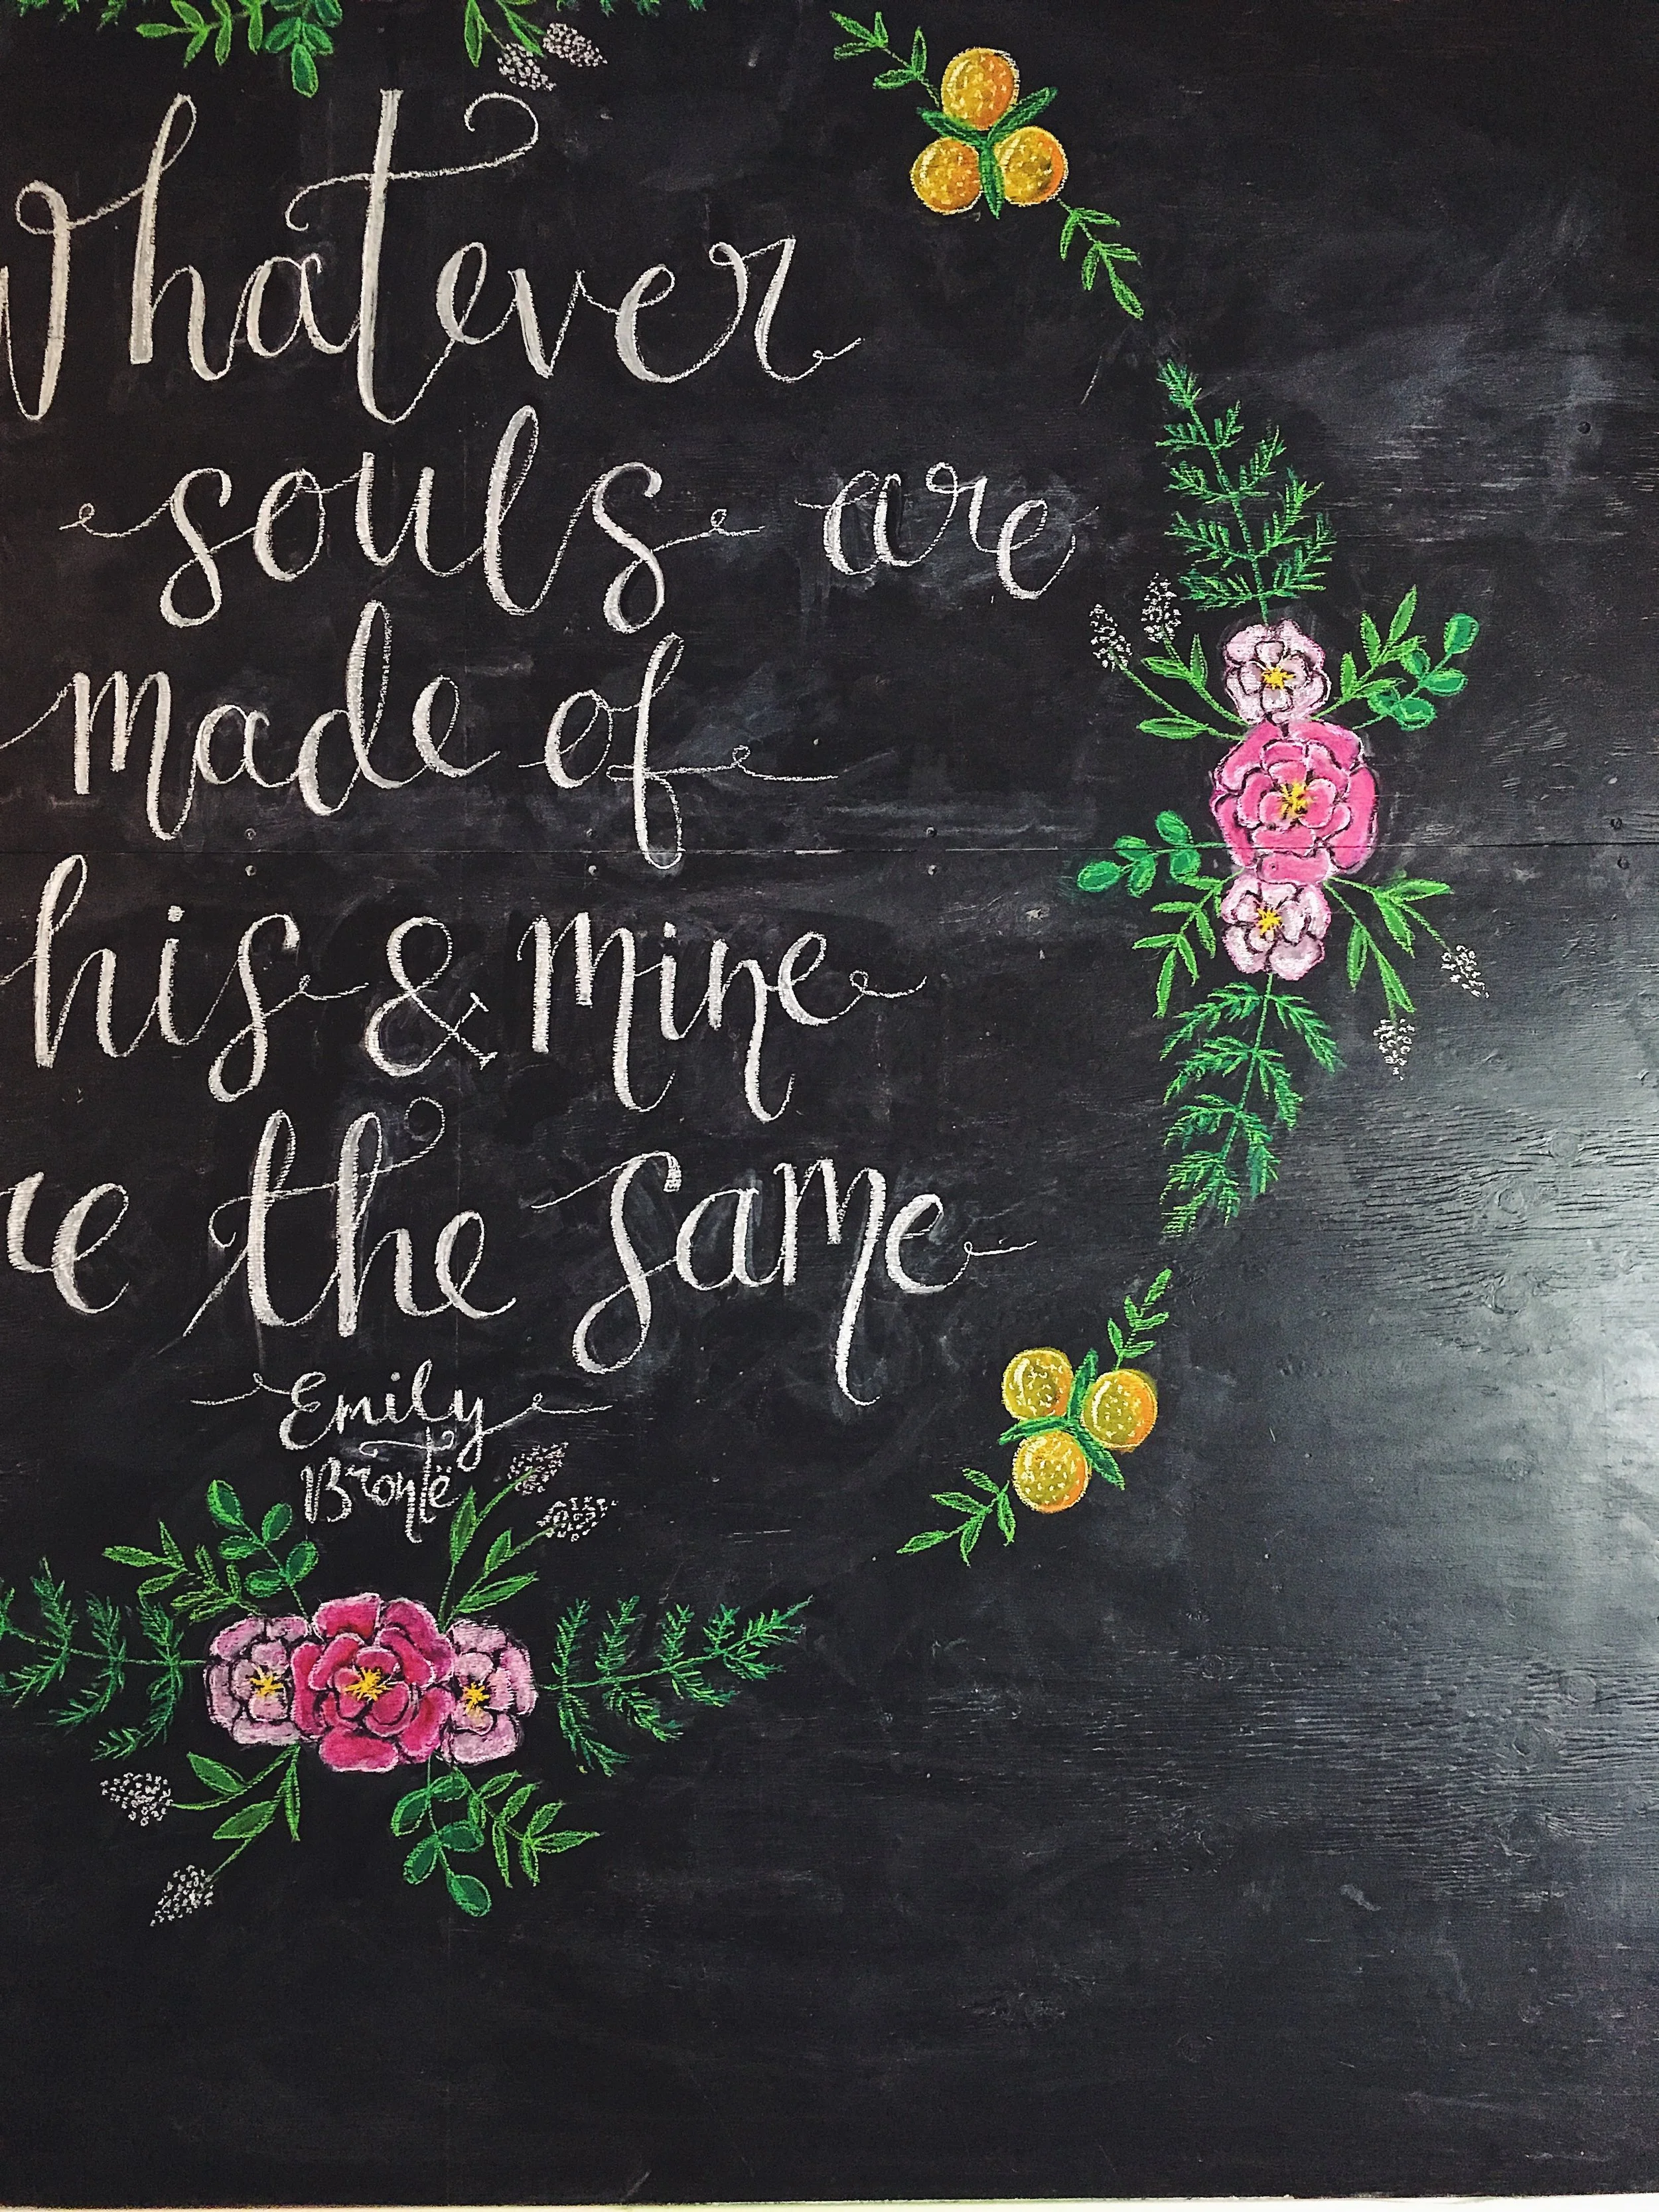 Whatever
souls are
made of
his & mine
re the same
Emily
Brontë